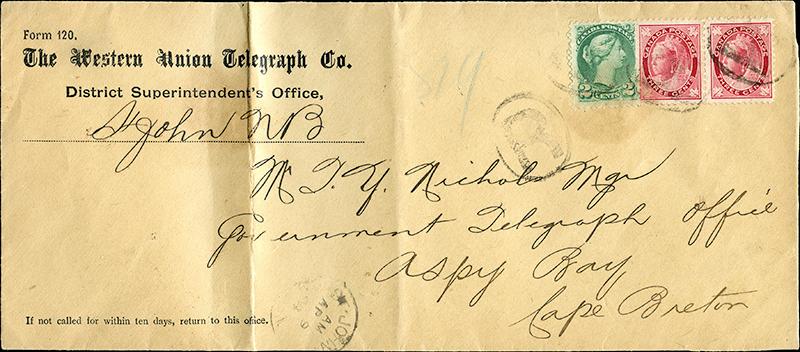 Form 120.
The Western Union Telegraph Co.
District Superintendent's Office,
St John NB
CANADA POSTAGE
2 CENTS 2
CANADA POSTAGE
THREE CENTS
CANADA POSTAGE
THREE CENTS
79
Mr T. Y. Nichol Mgr
Government Telegraph Office
Aspy Bay
Cape Breton
If not called for within ten days, return to this office.
JOHN
AM
AP 9